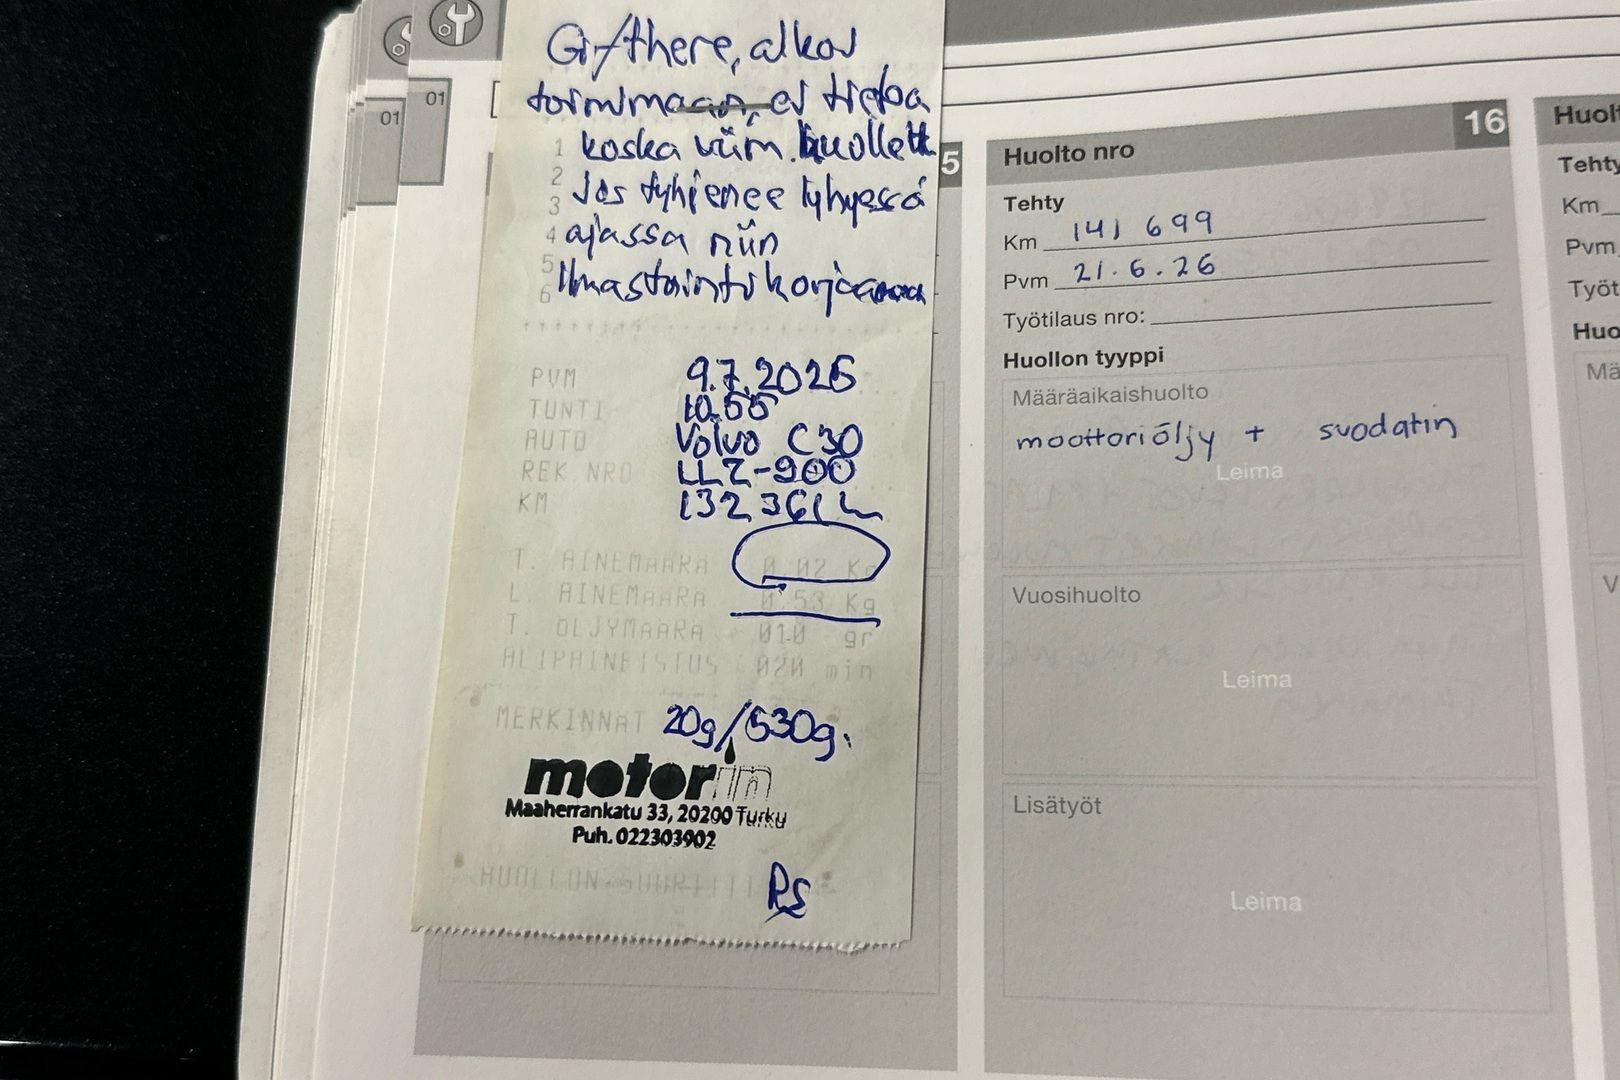 01
01
Ei/there, alkoi
toimimaan, ei tietoa
1 koska viim. huollett
2
3 Jos tyhjenee lyhyessä
4 ajassa niin
5
6 Ilmastointikorjaamo
PVM 9.7.2025
TUNTI 10.55
AUTO Volvo C30
REK.NRO LLZ-900
KM 132 361
T. AINEMAARA 0.02 Kg
L. AINEMAARA 0.53 Kg
T. OLJYMAARA 010 gr
ALIPAINEISTUS 020 min
MERKINNAT 20g/530g.
motorin
Maaherrankatu 33, 20200 Turku
Puh. 022303902
RS
5
Huolto nro 16
Tehty
Km 141 699
Pvm 21.6.26
Työtilaus nro:
Huollon tyyppi
Määräaikaishuolto
moottoriöljy + suodatin
Leima
Vuosihuolto
Leima
Lisätyöt
Leima
Huolt
Tehty
Km
Pvm
Työt
Huo
Mä
V